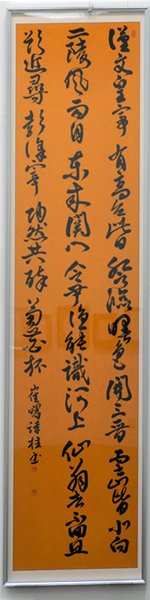 漢文皇帝有高台此日登临曙色開三晋雲山皆北向
二陵风雨自东来関门令尹谁能識河上仙翁去不回且
欲近尋彭澤宰陶然共醉菊花杯 崔曙詩